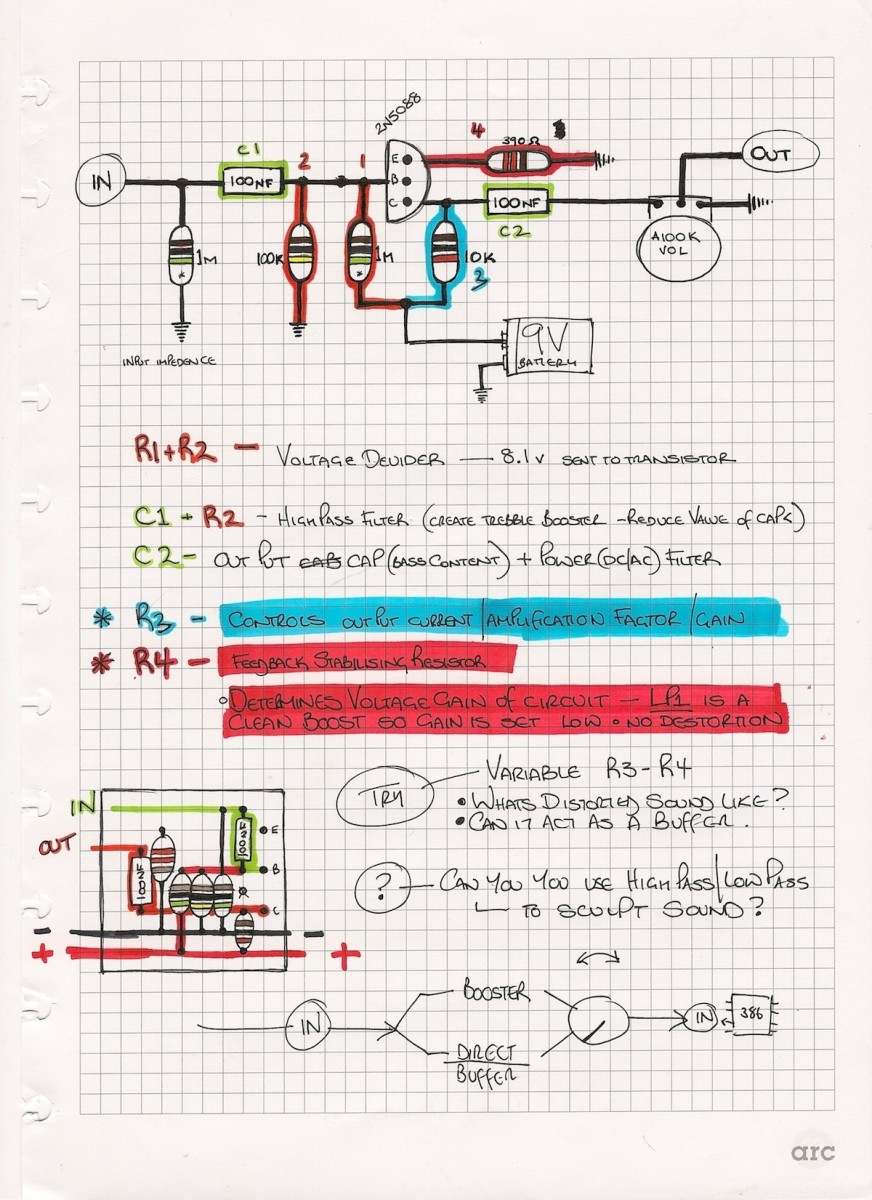 2N5088
C1
2
1
4
390Ω
E
IN
100NF
B
OUT
C
100NF
C2
A100K
VOL
1M
100K
1M
10K
3
9V
BATTERY
INPUT IMPEDENCE
R1+R2 - VOLTAGE DEVIDER — 8.1V SENT TO TRANSISTOR
C1 + R2 - HIGH PASS FILTER (CREATE TREBBLE BOOSTER - REDUCE VALUE OF CAPS)
C2 - OUT PUT CAP (BASS CONTENT) + POWER (DC/AC) FILTER
* R3 - CONTROLS OUTPUT CURRENT / AMPLIFICATION FACTOR / GAIN
* R4 - FEEDBACK STABILISING RESISTOR
• DETERMINES VOLTAGE GAIN OF CIRCUIT — LP1 IS A
CLEAN BOOST SO GAIN IS SET LOW • NO DESTORTION
TRY — VARIABLE R3 - R4
• WHATS DISTORTED SOUND LIKE?
• CAN IT ACT AS A BUFFER.
IN
OUT
E
B
C
100NF
100NF
- -
+ +
? — CAN YOU YOU USE HIGH PASS/LOW PASS
TO SCULPT SOUND?
IN
BOOSTER
DIRECT
BUFFER
IN
386
arc